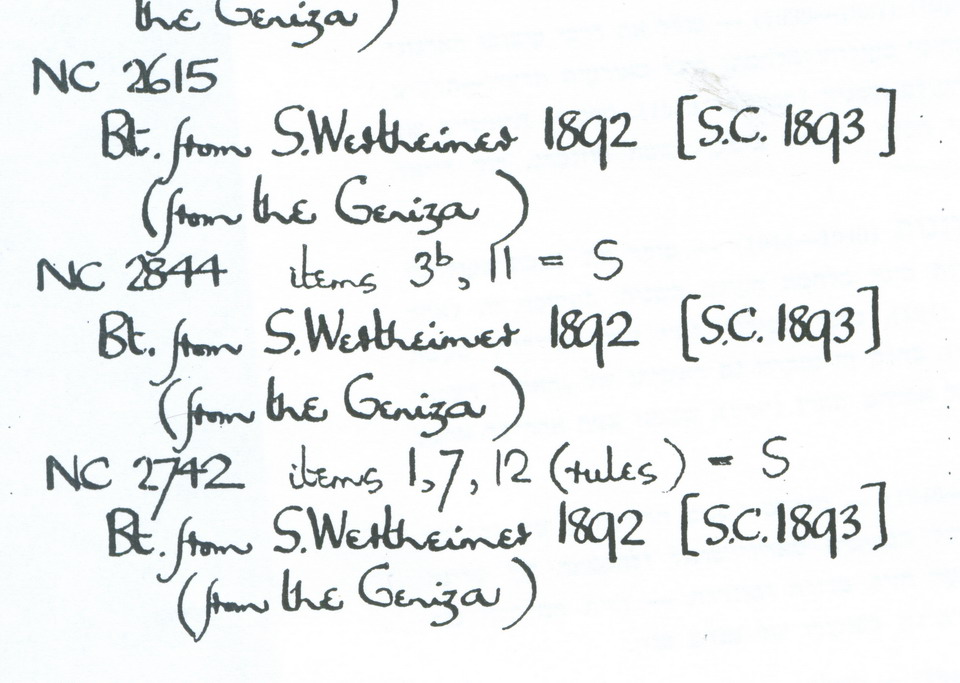 the Geniza)
NC 2615
Bt. from S.Wertheimer 1892 [S.C. 1893]
(from the Geniza)
NC 2844 items 3ᵇ, 11 = S
Bt. from S.Wertheimer 1892 [S.C. 1893]
(from the Geniza)
NC 2742 items 1,7, 12 (rules) = S
Bt. from S.Wertheimer 1892 [S.C. 1893]
(from the Geniza)